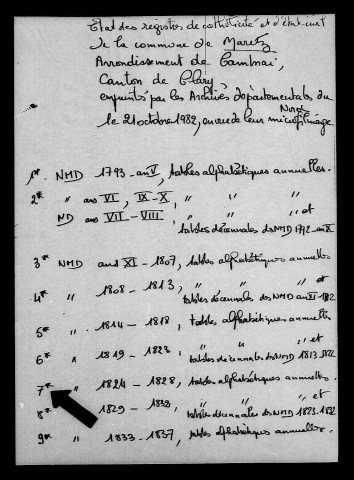 Etat des registres de catholicité et d'état-civil
de la commune de Maretz
Arrondissement de Cambrai,
Canton de Clary,
empruntés par les Archives départementales du Nord
le 21 octobre 1982, en vue de leur microfilmage
1* NMD 1793-an V, tables alphabétiques annuelles.
2* " ans VI, IX-X, " " "
ND ans VII-VIII, " " " et
tables décennales des NMD 1792-an X
3* NMD ans XI-1807, tables alphabétiques annuelles
4* " 1808-1813, " " " et
tables décennales des NMD an XI-1812
5* " 1814-1818, tables alphabétiques annuelles
6* " 1819-1823, " " " et
tables décennales des NMD 1813-1822
7* " 1824-1828, tables alphabétiques annuelles.
8* " 1829-1832, " " " et
tables décennales des NMD 1823-1832
9* " 1833-1837, tables alphabétiques annuelles.